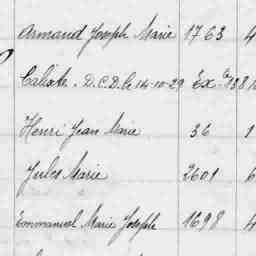 Armand Joseph Marie 1763 4
Calixte. D.C.D. le 14-10-29 Ex. 738
Henri Jean Marie 36 1
Jules Marie 2601 6
Emmanuel Marie Joseph 1698 4